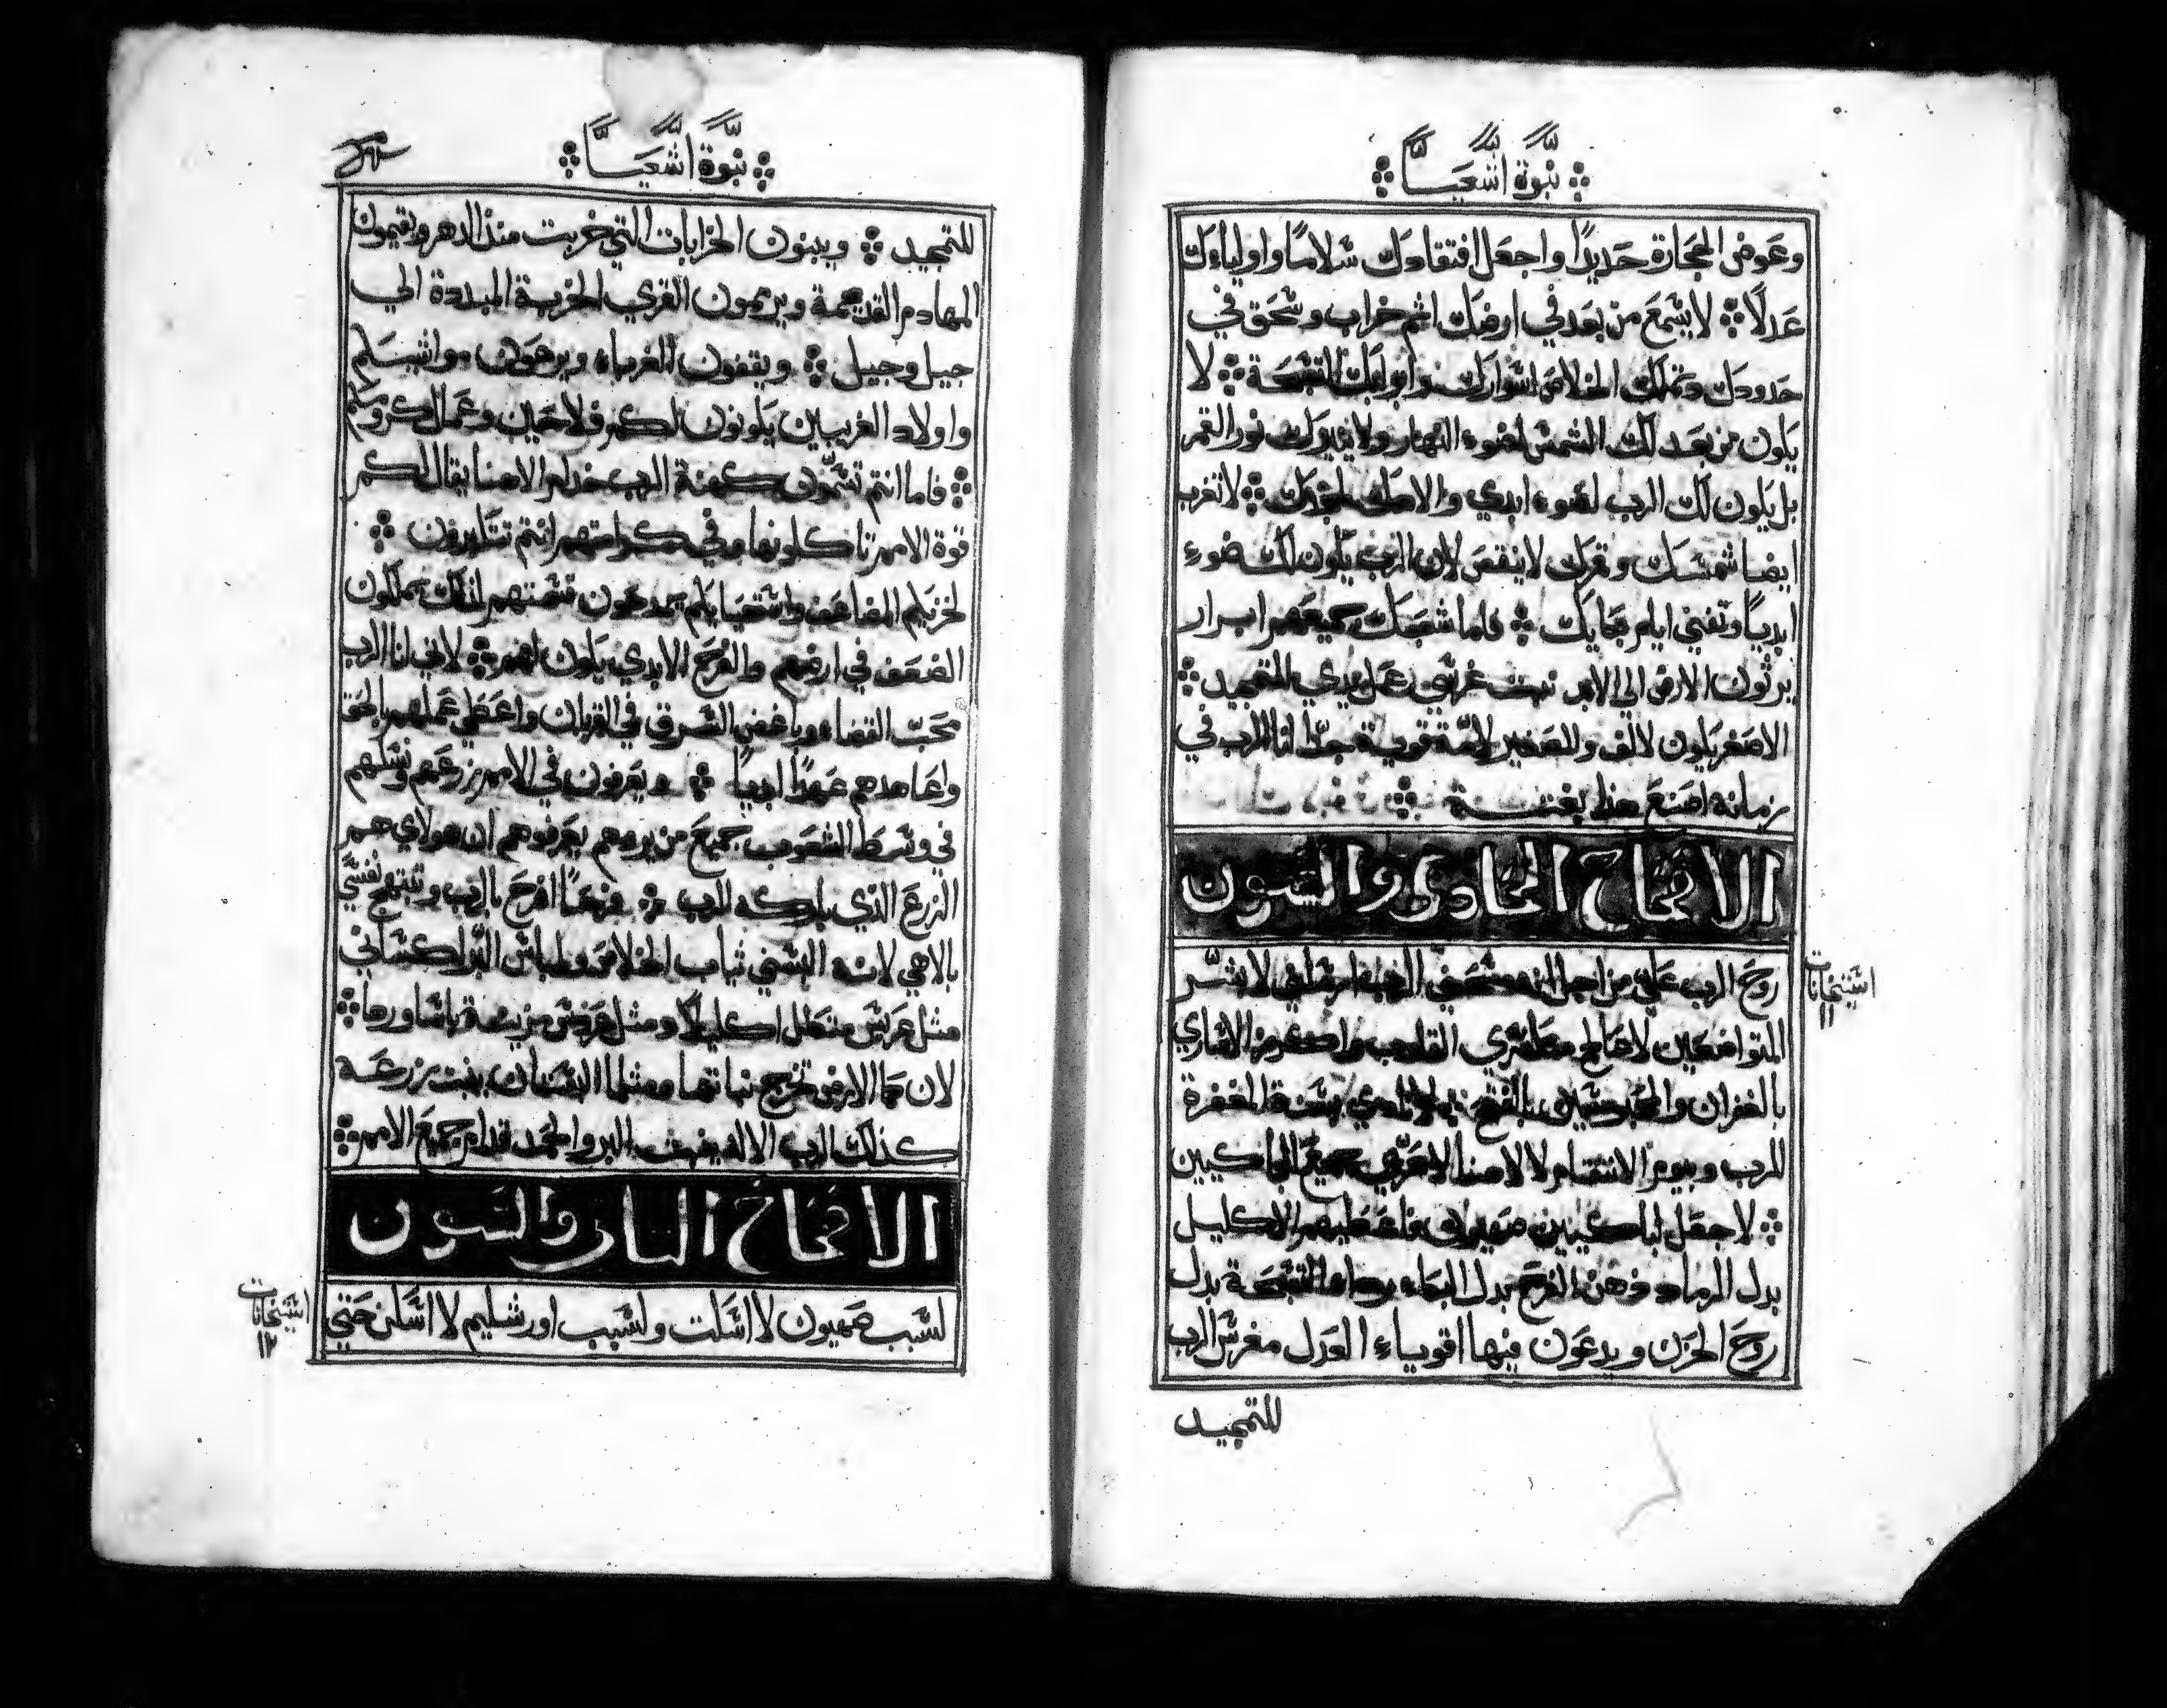 نبوة اشعيا
وعوض الحجارة حديدًا واجعل افتقادك سلامًا واوليااك
عدلًا لا يسمع من بعد في ارضك اثم خراب وسحق في
حدودك وتملك الخلاص اسوارك وابوابك التسبحة لا
يكون من بعد لك الشمس لضوء النهار ولا ينيرك نور القمر
بل يكون لك الرب لضوء ابدي والاهك لمجدك لا تغرب
ايضا شمسك وقمرك لا ينقص لان الرب يكون لك ضوء
ابديًا وتفني ايام بكايك فاما شعبك جميعهم ابرار
يرثون الارض الي الابد نبت غرسي عمل يدي للتمجيد
الاصغر يكون لالف والصغير لامة قوية جدًا انا الرب في
زمانه اصنع هذا بغتة
الافتتاح الحادي والستون
روح الرب علي من اجل انه مسحني الرب ارسلني لابشر
المتواضعين لاعالج منكسري القلوب واكرز الاساري
بالغفران والمحبوسين بالفتح لانادي بسنة المغفرة
للرب وبيوم الانتقام لالاهنا لاعزي جميع الباكيين
لاجعل لباكيين صهيون فاعطيهم الاكليل
بدل الرماد ودهن الفرح بدل البكاء ورداء التسبحة بدل
روح الحزن ويدعون فيها اقوياء العدل مغرس الرب
للتمجيد
استيخانات
١١
نبوة اشعيا
للتمجيد ويبنون الخرابات التي خربت منذ الدهر ويقيمون
المهادم القديمة ويرممون القري الخربة المبددة الي
جيل وجيل ويقفون الغرباء ويرعون مواشيكم
واولاد الغريبين يكونون لكم فلاحين وعمال كرومكم
فاما انتم تسمون كهنة الرب خدام الاهنا يقال لكم
قوة الامم تاكلونها وفي كرامتهم انتم تتكبرون
لخزيكم المضاعف واستحيايكم يمدحون قسمتهم لذلك يملكون
الضعف في ارضهم والفرح الابدي يكون لهم لاني انا الرب
محب القضاء وباغض السرق في القربان واعطي عملهم بالحق
واعاهدهم عهدًا ابديًا ويعرفون في الامم زرعهم ونسلهم
في وسط الشعوب جميع من يروهم يعرفوهم ان هولاي هم
الزرع الذي باركه الرب فرحًا افرح بالرب وتبتهج نفسي
بالاهي لانه البسني ثياب الخلاص ولباس البر كساني
مثل عريس متكلل اكليلًا ومثل عروس مزينة باساورها
لان كما الارض تخرج نباتها ومثلما البستان ينبت زرعه
كذلك الرب الاله ينبت البر والحمد قدام جميع الامم
الافتتاح الثاني والستون
لسبب صهيون لا اسكت ولسبب اورشليم لا اسكن حتي
استيخانات
١٢